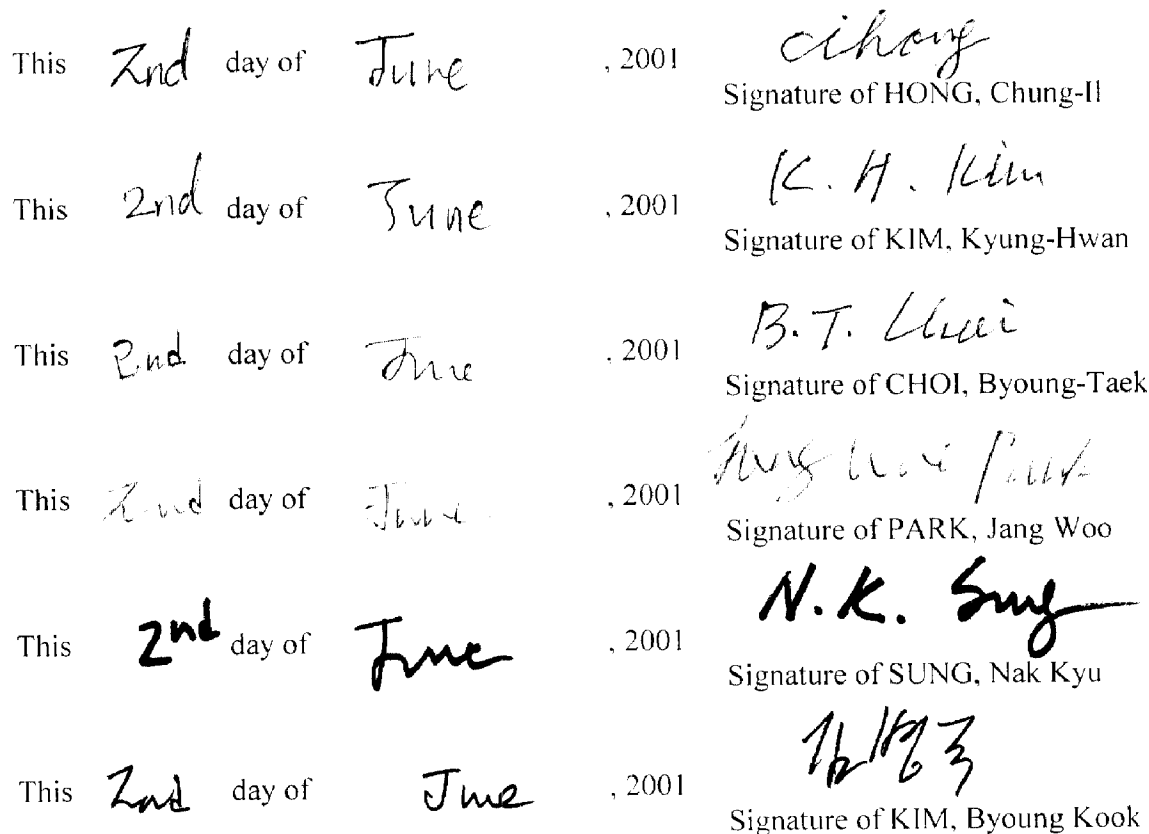 This 2nd day of June , 2001 cihong
Signature of HONG, Chung-Il
This 2nd day of June , 2001 K. H. Kim
Signature of KIM, Kyung-Hwan
This 2nd day of June , 2001 B. T. Choi
Signature of CHOI, Byoung-Taek
This 2nd day of June , 2001 Jang Woo Park
Signature of PARK, Jang Woo
This 2nd day of June , 2001 N. K. Sung
Signature of SUNG, Nak Kyu
This 2nd day of June , 2001 김병국
Signature of KIM, Byoung Kook